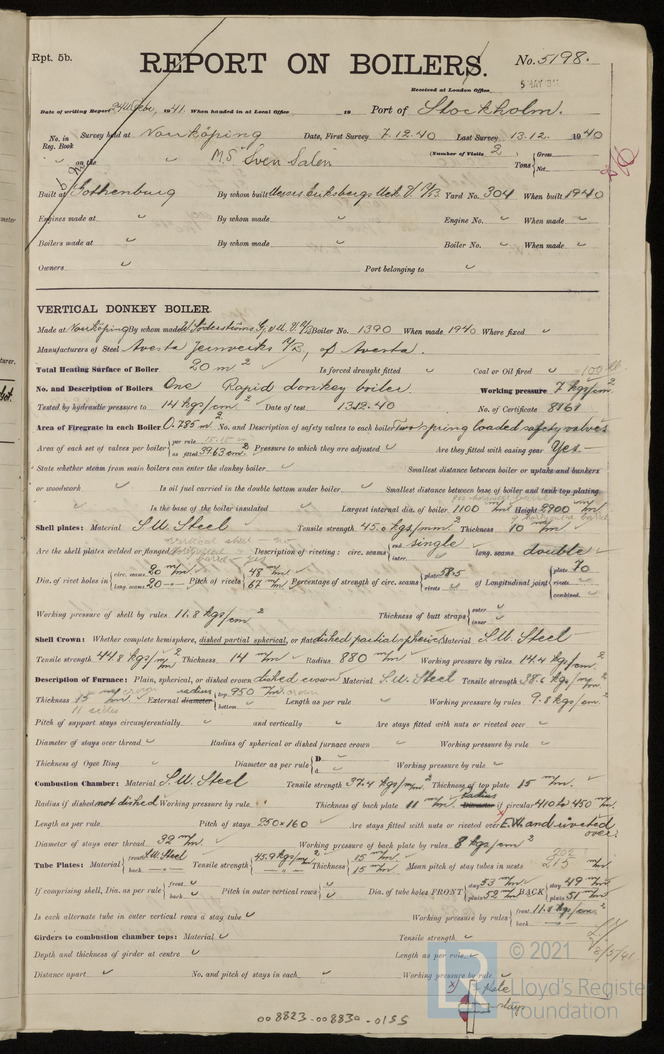 Rpt. 5b.
REPORT ON BOILERS.
No. 5198.
Received at London Office
5 MAY 1941
Date of writing Report 24th Febr. 1941. When handed in at Local Office 19 Port of Stockholm.
No. in Reg. Book Survey held at Norrköping Date, First Survey 7.12.40 Last Survey 13.12. 1940
on the M.S. Sven Salén (Number of Visits 2) Tons Gross Net
Built at Gothenburg By whom built Messrs Eriksbergs Mek. V. A/B Yard No. 304 When built 1940
Engines made at By whom made Engine No. When made
Boilers made at By whom made Boiler No. When made
Owners Port belonging to
VERTICAL DONKEY BOILER.
Made at Norrköping By whom made W. Söderströms G. & M. V. A/B Boiler No. 1390 When made 1940 Where fixed
Manufacturers of Steel Avesta Jernverks A/B, of Avesta.
Total Heating Surface of Boiler 20 m² Is forced draught fitted Coal or Oil fired
No. and Description of Boilers One Rapid donkey boiler. Working pressure 7 kgs/cm²
Tested by hydraulic pressure to 14 kgs/cm² Date of test 13.12.40 No. of Certificate 8161
Area of Firegrate in each Boiler 0.785 m² No. and Description of safety valves to each boiler Two spring loaded safety valves
Area of each set of valves per boiler per rule as fitted 39.63 cm² Pressure to which they are adjusted Are they fitted with easing gear Yes
State whether steam from main boilers can enter the donkey boiler Smallest distance between boiler or uptake and bunkers
or woodwork Is oil fuel carried in the double bottom under boiler Smallest distance between base of boiler and tank top plating
Is the base of the boiler insulated Largest internal dia. of boiler 1100 m/m Height 2900 m/m
Shell plates: Material S.M. Steel Tensile strength 45.0 kgs/mm² Thickness 10 m/m
Are the shell plates welded or flanged Description of riveting: circ. seams end single inter. long. seams double
Dia. of rivet holes in circ. seams 20 m/m long. seams 20 Pitch of rivets 48 m/m 67 m/m Percentage of strength of circ. seams plate 58.5 rivets of Longitudinal joint plate 70 rivets combined
Working pressure of shell by rules 11.8 kgs/cm² Thickness of butt straps outer inner
Shell Crown: Whether complete hemisphere, dished partial spherical, or flat dished partial spheric. Material S.M. Steel
Tensile strength 44.8 kgs/mm² Thickness 14 m/m Radius 880 m/m Working pressure by rules 14.4 kgs/cm²
Description of Furnace: Plain, spherical, or dished crown dished crown Material S.M. Steel Tensile strength 38.6 kgs/mm²
Thickness 15 m/m crown 11 sides External diameter radius top 950 m/m crown bottom Length as per rule Working pressure by rules 9.8 kgs/cm²
Pitch of support stays circumferentially and vertically Are stays fitted with nuts or riveted over
Diameter of stays over thread Radius of spherical or dished furnace crown Working pressure by rule
Thickness of Ogee Ring Diameter as per rule D d Working pressure by rule
Combustion Chamber: Material S.M. Steel Tensile strength 37.4 kgs/mm² Thickness of top plate 15 m/m
Radius if dished not dished Working pressure by rule Thickness of back plate 11 m/m Diameter Radius if circular 410 & 450 m/m
Length as per rule Pitch of stays 250×160 Are stays fitted with nuts or riveted over E.W. and riveted over
Diameter of stays over thread 39 m/m Working pressure of back plate by rules 8 kgs/cm²
Tube Plates: Material front S.M. Steel back Tensile strength 45.9 kgs/mm² Thickness 15 m/m 15 m/m Mean pitch of stay tubes in nests 215 m/m
If comprising shell, Dia. as per rule front back Pitch in outer vertical rows Dia. of tube holes FRONT stay 53 m/m plain 52 m/m BACK stay 49 m/m plain 51 m/m
Is each alternate tube in outer vertical rows a stay tube Working pressure by rules front 11.8 kgs/cm² back
Girders to combustion chamber tops: Material Tensile strength
Depth and thickness of girder at centre Length as per rule
Distance apart No. and pitch of stays in each Working pressure by rule
© 2021
Lloyd's Register
Foundation
LR
008823-008830-0155